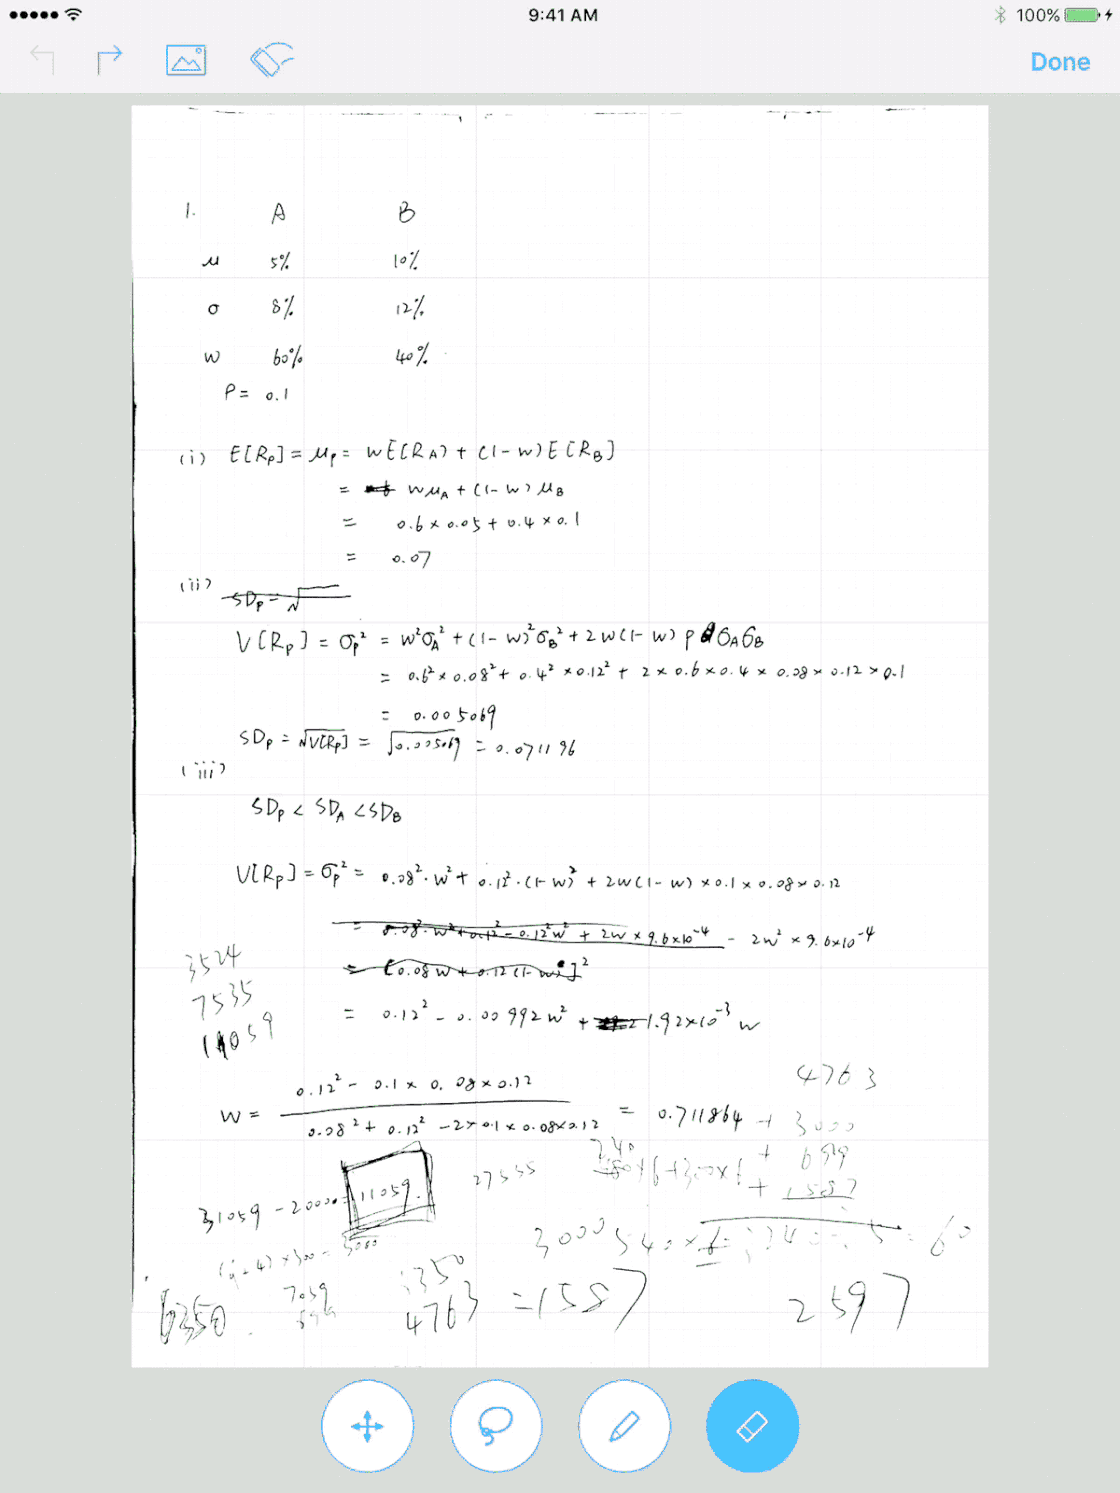 9:41 AM
100%
Done
1. A B
μ 5% 10%
σ 8% 12%
w 60% 40%
ρ = 0.1
(i) E[Rp] = μp = wE[RA] + (1-w)E[RB]
= wμA + (1-w)μB
= 0.6 × 0.05 + 0.4 × 0.1
= 0.07
(ii) SDp = √
V[Rp] = σp² = w²σA² + (1-w)²σB² + 2w(1-w) ρ σAσB
= 0.6² × 0.08² + 0.4² × 0.12² + 2 × 0.6 × 0.4 × 0.08 × 0.12 × 0.1
= 0.005069
SDp = √V[Rp] = √0.005069 = 0.071196
(iii)
SDp < SDA < SDB
V[Rp] = σp² = 0.08²·w² + 0.12²·(1-w)² + 2w(1-w) × 0.1 × 0.08 × 0.12
= 0.08²·w² + 0.12² - 0.12²w² + 2w × 9.6×10⁻⁴ - 2w² × 9.6×10⁻⁴
= [0.08w + 0.12(1-w)]²
= 0.12² - 0.00992w² + 1.92×10⁻³ w
3524
7535
11059
w = (0.12² - 0.1 × 0.08 × 0.12) / (0.08² + 0.12² - 2×0.1×0.08×0.12) = 0.711864
4763
+ 3000
+ 699
+ 1587
27555
31059 - 20000 = 11059
3000
7059
6350
350
4763 = 1587
2597